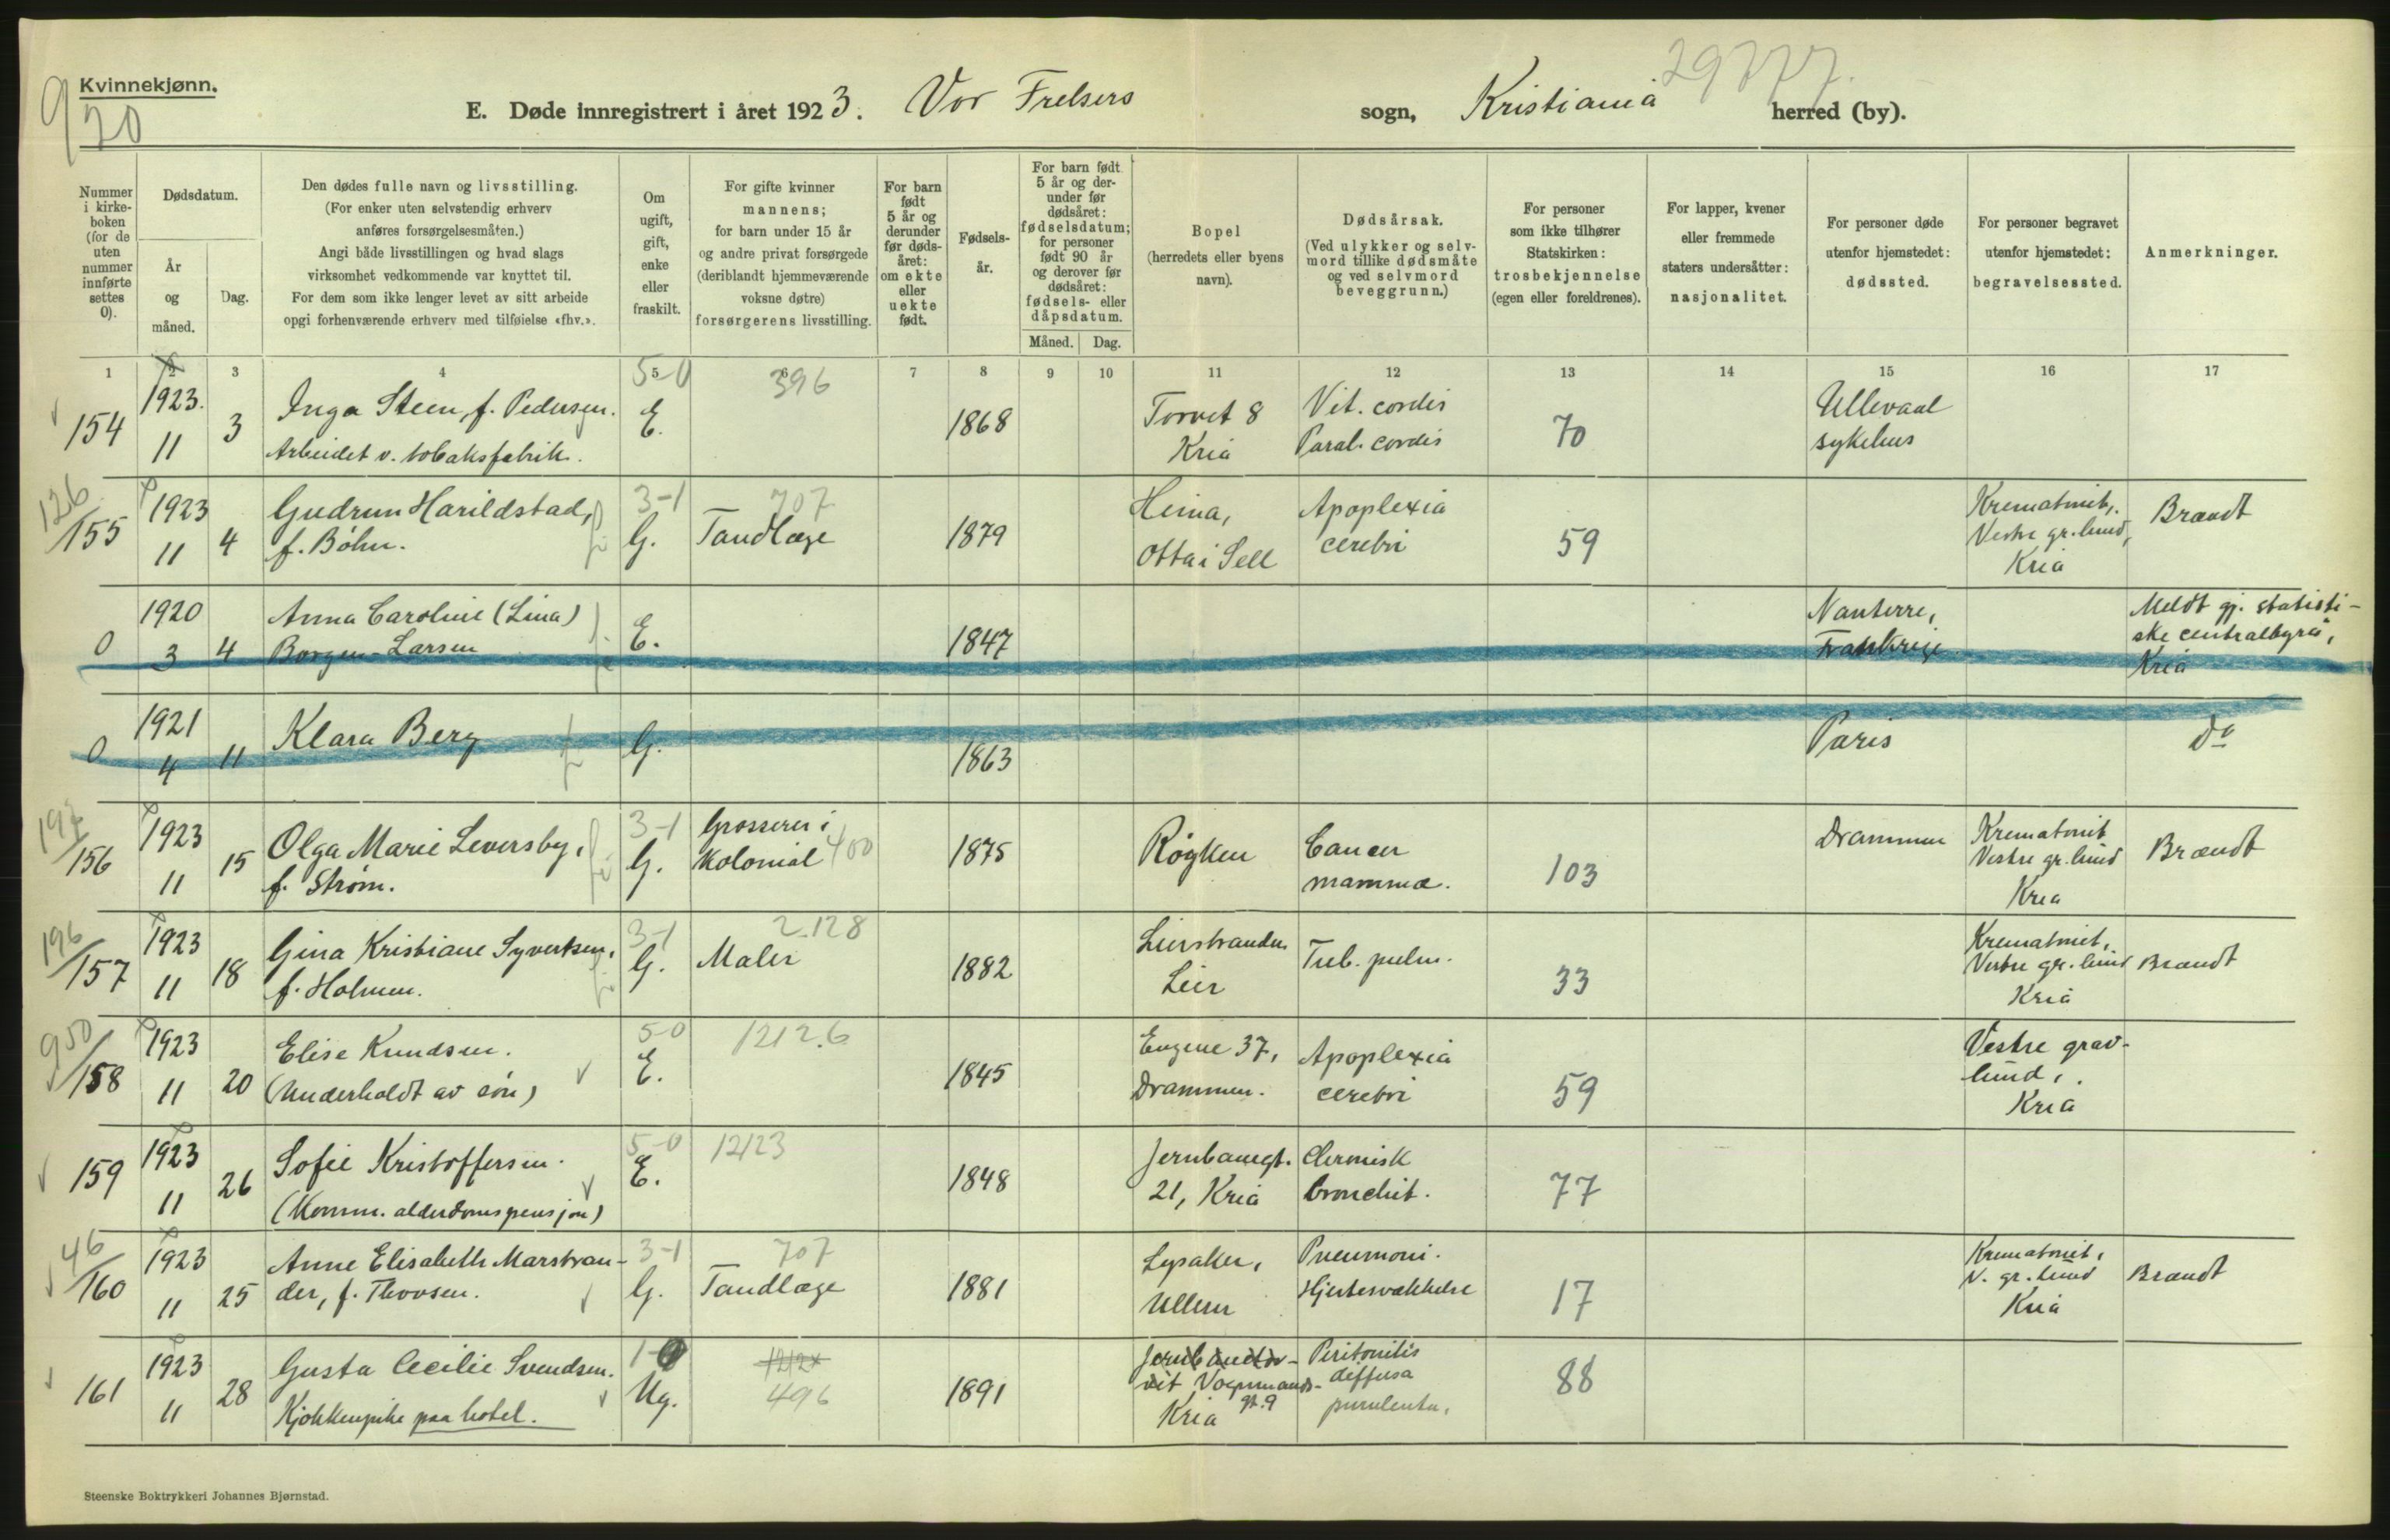 Kvinnekjønn.
920
29777.
E. Døde innregistrert i året 1923. Vor Frelsers sogn, Kristiania herred (by).
Nummer i kirke-boken (for de uten nummer innførte settes 0).
Dødsdatum.
År og måned.
Dag.
Den dødes fulle navn og livsstilling.
(For enker uten selvstendig erhverv
anføres forsørgelsesmåten.)
Angi både livsstillingen og hvad slags
virksomhet vedkommende var knyttet til.
For dem som ikke lenger levet av sitt arbeide
opgi forhenværende erhverv med tilføielse «fhv.».
Om ugift, gift, enke eller fraskilt.
For gifte kvinner
mannens;
for barn under 15 år
og andre privat forsørgede
(deriblandt hjemmeværende
voksne døtre)
forsørgerens livsstilling.
For barn født 5 år og derunder før døds-året: om ekte eller uekte født.
Fødsels-år.
For barn født 5 år og der-under før dødsåret: fødselsdatum; for personer født 90 år og derover før dødsåret: fødsels- eller dåpsdatum.
Måned. Dag.
Bopel
(herredets eller byens
navn).
Dødsårsak.
(Ved ulykker og selv-
mord tillike dødsmåte
og ved selvmord
beveggrunn.)
For personer
som ikke tilhører
Statskirken:
trosbekjennelse
(egen eller foreldrenes).
For lapper, kvener
eller fremmede
staters undersåtter:
nasjonalitet.
For personer døde
utenfor hjemstedet:
dødssted.
For personer begravet
utenfor hjemstedet:
begravelsessted.
Anmerkninger.
1 2 3 4 5 6 7 8 9 10 11 12 13 14 15 16 17
154 1923. 11 3 Inga Steen, f. Pedersen.
Arbeidet v. tobaksfabrik.
5-0 E. 396 1868
Torvet 8
Kria
Vit. cordis
Paral. cordis
70
Ullevaal
sykehus
126/155 1923 11 4 Gudrun Harildstad,
f. Bøhn.
3-1 G. 707 Tandlæge 1879
Heina,
Otta i Sell
Apoplexia
cerebri
59
Krematoriet,
Vestre gr.lund,
Kria
Brandt
0 1920 3 4 Anna Caroline (Lina)
Borgen-Larsen
E. 1847
Nanterre,
Frankrige
Meldt gj. statisti-
ske centralbyrå,
Kria
0 1921 4 11 Klara Berg G. 1863 Paris do
156 1923 11 15 Olga Marie Leversby,
f. Strøm.
3-1 G.
Grosserer i
Kolonial 400
1875 Røyken
Cancer
mammæ.
103 Drammen
Krematoriet
Vestre gr.lund
Kria
Brandt
196/157 1923 11 18 Gina Kristiane Syvertsen,
f. Holmen.
3-1 G. 2.128 Maler 1882
Lierstranden
Lier
Tub. pulm.
33
Krematoriet,
Vestre gr.lund
Kria
Brandt
950/158 1923 11 20 Elise Knudsen.
(Underholdt av søn)
5-0 E. 1212.6 1845
Eugene 37,
Drammen.
Apoplexia
cerebri
59
Vestre grav-
lund,
Kria
159 1923 11 26 Sofie Kristoffersen.
(Komm. alderdomspensjon)
5-0 E. 12123 1848
Jernbanegt.
21, Kria
Chronisk
bronchit.
77
46/160 1923 11 25 Anne Elisabeth Marstran-
der, f. Thorsen.
3-1 G. 707 Tandlæge 1881
Lysaker,
Ullern
Pneumoni.
Hjertesvækkelse
17
Krematoriet,
V. gr.lund
Kria
Brandt
161 1923 11 28 Gusta Cecilie Svendsen.
Kjøkkenpike paa hotel.
1-0 Ug. 496 1891
Kria
Peritonitis
diffusa
purulenta.
88
Steenske Boktrykkeri Johannes Bjørnstad.